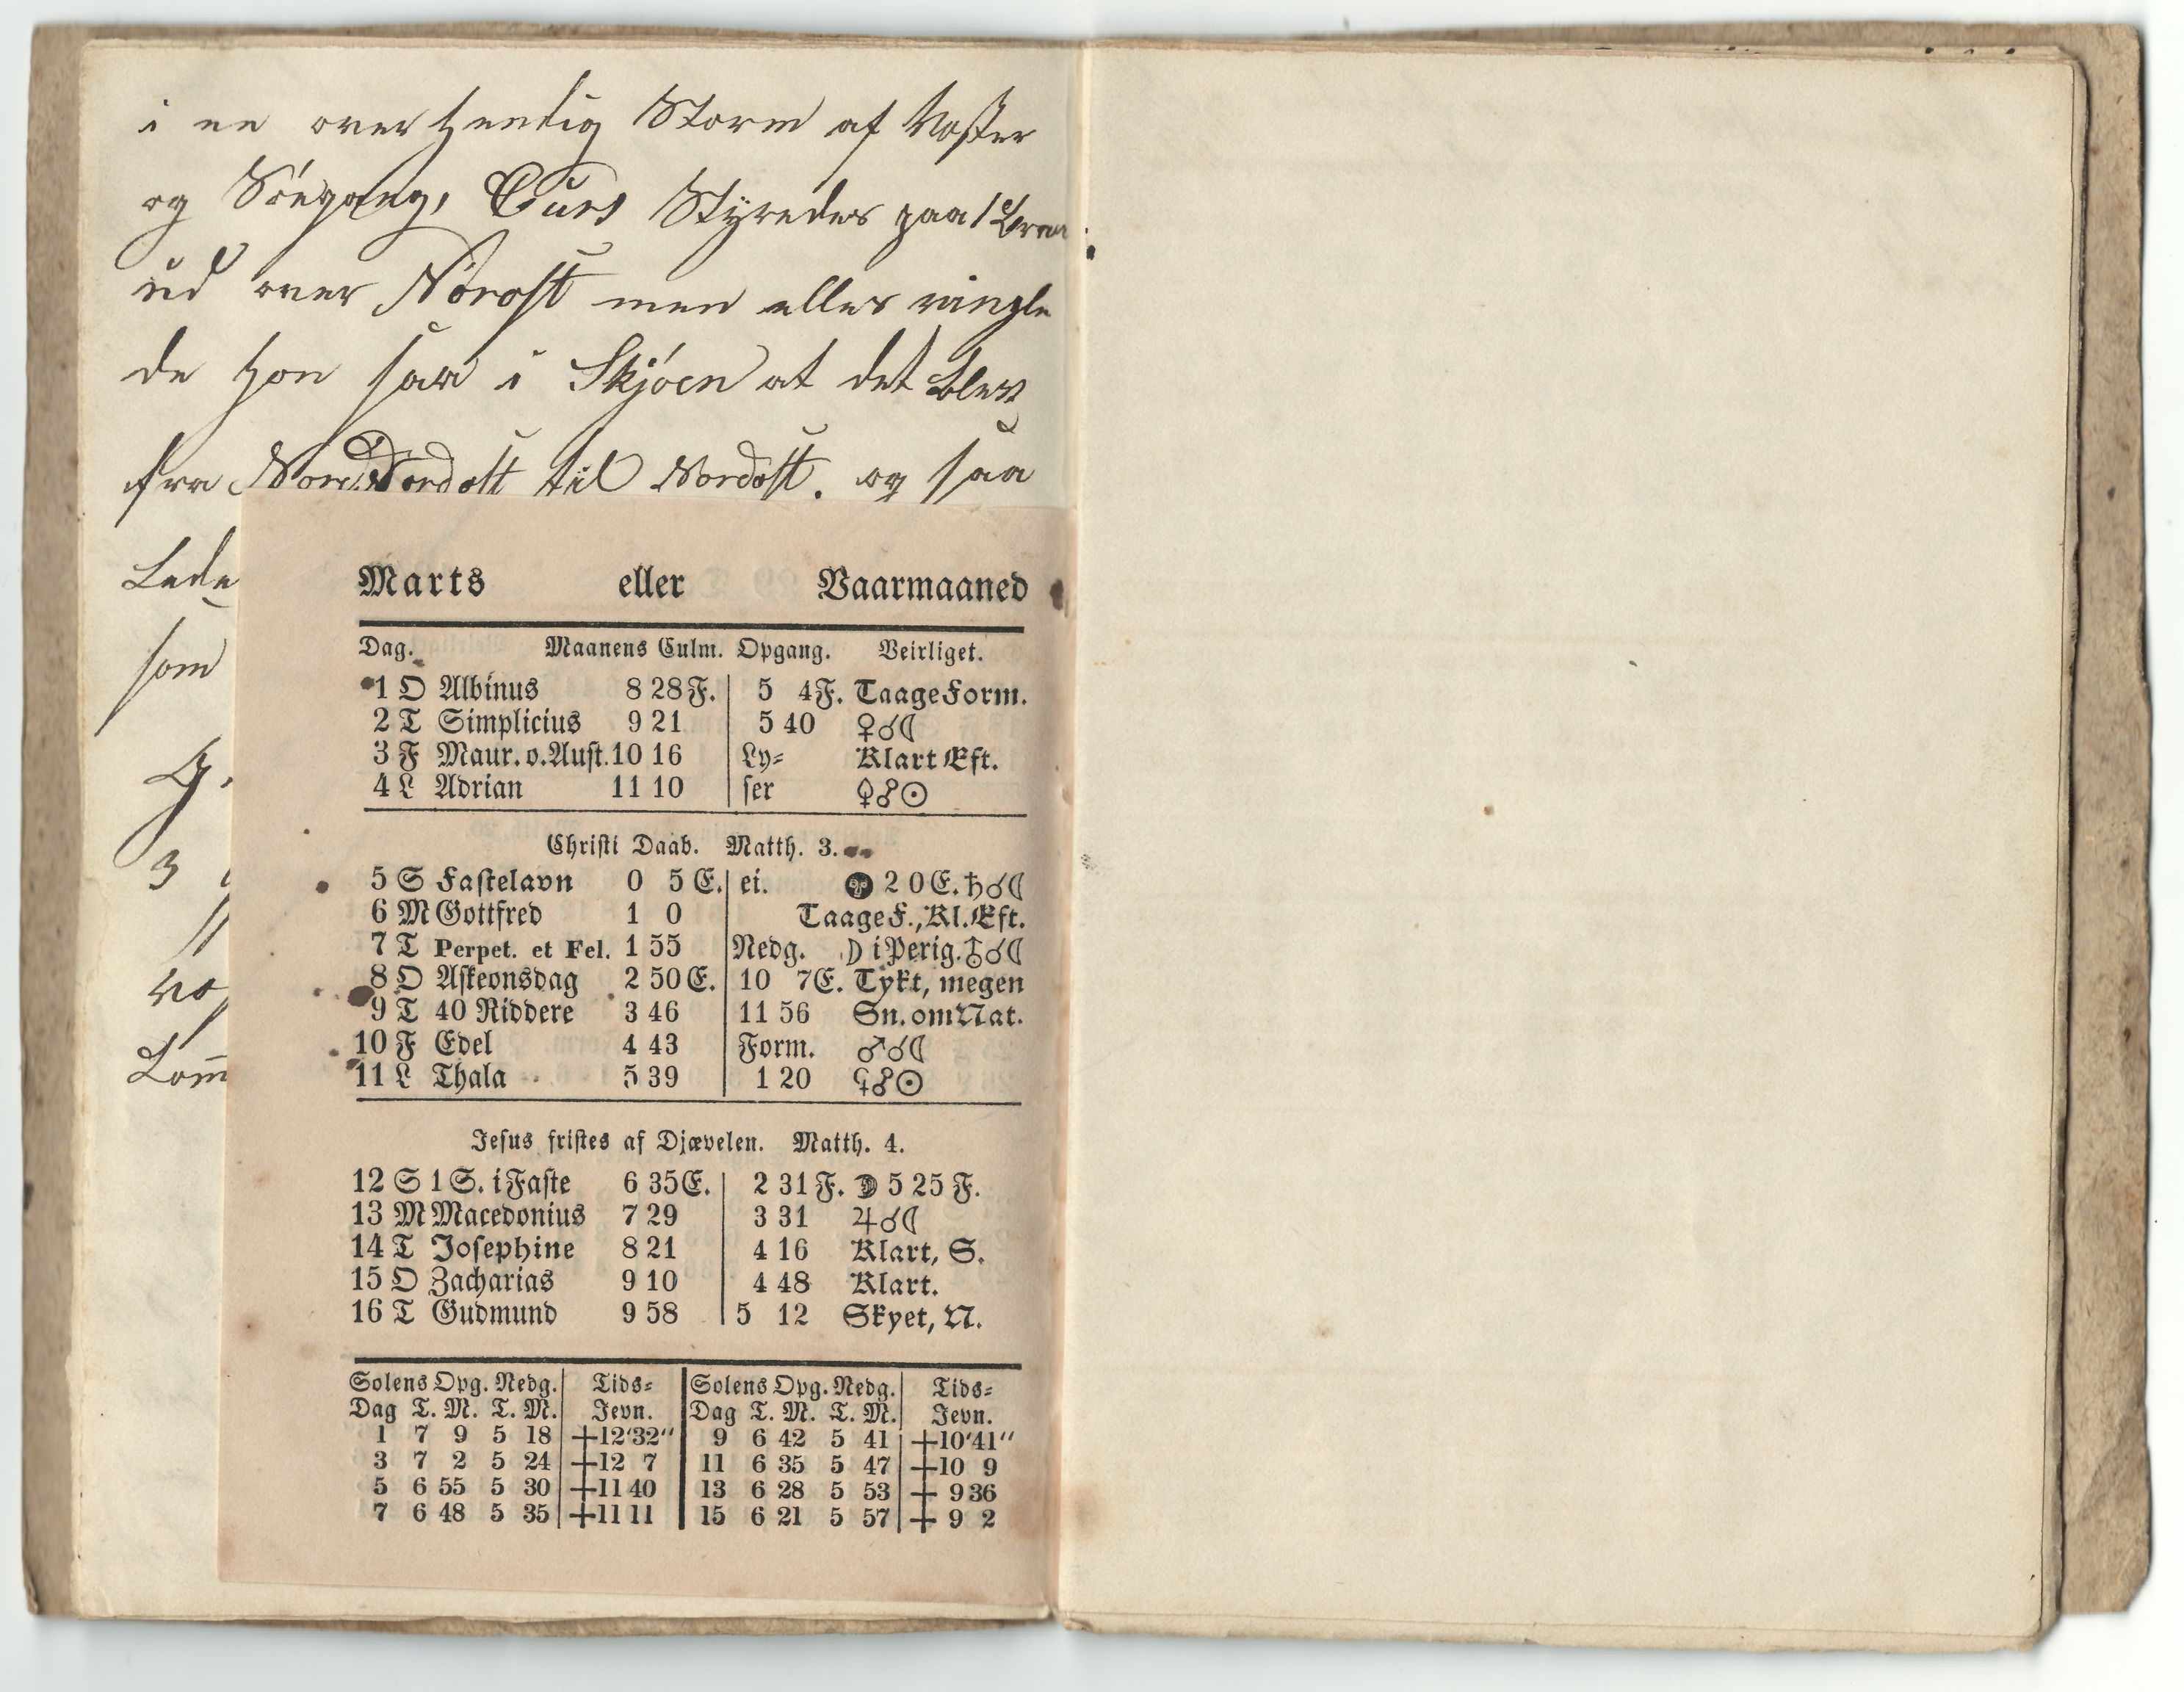 i en overhendig Storm af Vester
og Söegang, Curs Styredes paa
ud over Nörost men elles ringle
de hon saa i Skjöen at det blev
fra NordNordost til Nordost. og saa
Lede
som
3
Marts eller Vaarmaaned
Dag. Maanens Culm. Opgang. Veirliget.
1 O Albinus 8 28 F. 5 4 F. Taage Form.
2 T Simplicius 9 21 5 40 ♀☌☾
3 F Maur. o. Aust. 10 16 Ly- Klart Eft.
4 L Adrian 11 10 ser ☍☉
Christi Daab. Matth. 3.
5 S Fastelavn 0 5 E. ei. 2 0 E. ♄☌☾
6 M Gottfred 1 0 Taage F., Kl. Eft.
7 T Perpet. et Fel. 1 55 Nedg. ☽ i Perig. ☌☾
8 O Askeonsdag 2 50 E. 10 7 E. Tykt, megen
9 T 40 Riddere 3 46 11 56 Sn. om Nat.
10 F Edel 4 43 Form. ♂☌☾
11 L Thala 5 39 1 20 ☍☉
Jesus fristes af Djævelen. Matth. 4.
12 S 1 S. i Faste 6 35 E. 2 31 F. ☽ 5 25 F.
13 M Macedonius 7 29 3 31 ♃☌☾
14 T Josephine 8 21 4 16 Klart, S.
15 O Zacharias 9 10 4 48 Klart.
16 T Gudmund 9 58 5 12 Skyet, N.
Solens Opg. Nedg. Tids- Solens Opg. Nedg. Tids-
Dag T. M. T. M. Jevn. Dag T. M. T. M. Jevn.
1 7 9 5 18 +12'32" 9 6 42 5 41 +10'41"
3 7 2 5 24 +12 7 11 6 35 5 47 +10 9
5 6 55 5 30 +11 40 13 6 28 5 53 + 9 36
7 6 48 5 35 +11 11 15 6 21 5 57 + 9 2